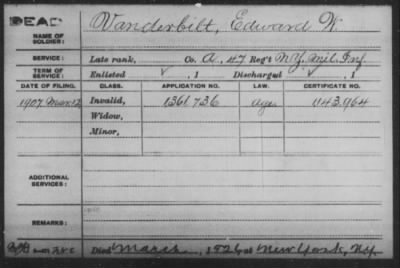 DEAD
NAME OF SOLDIER: Vanderbilt, Edward W.
SERVICE: Late rank, Co. A, 47 Reg't N.Y. Mil. Inf.
TERM OF SERVICE: Enlisted , 1 Discharged , 1
DATE OF FILING. CLASS. APPLICATION NO. LAW. CERTIFICATE NO.
1907 Mar 12 Invalid, 1361736 Age 1143.964
Widow,
Minor,
ADDITIONAL SERVICES:
REMARKS:
Died March , 1926 at New York, N.Y.